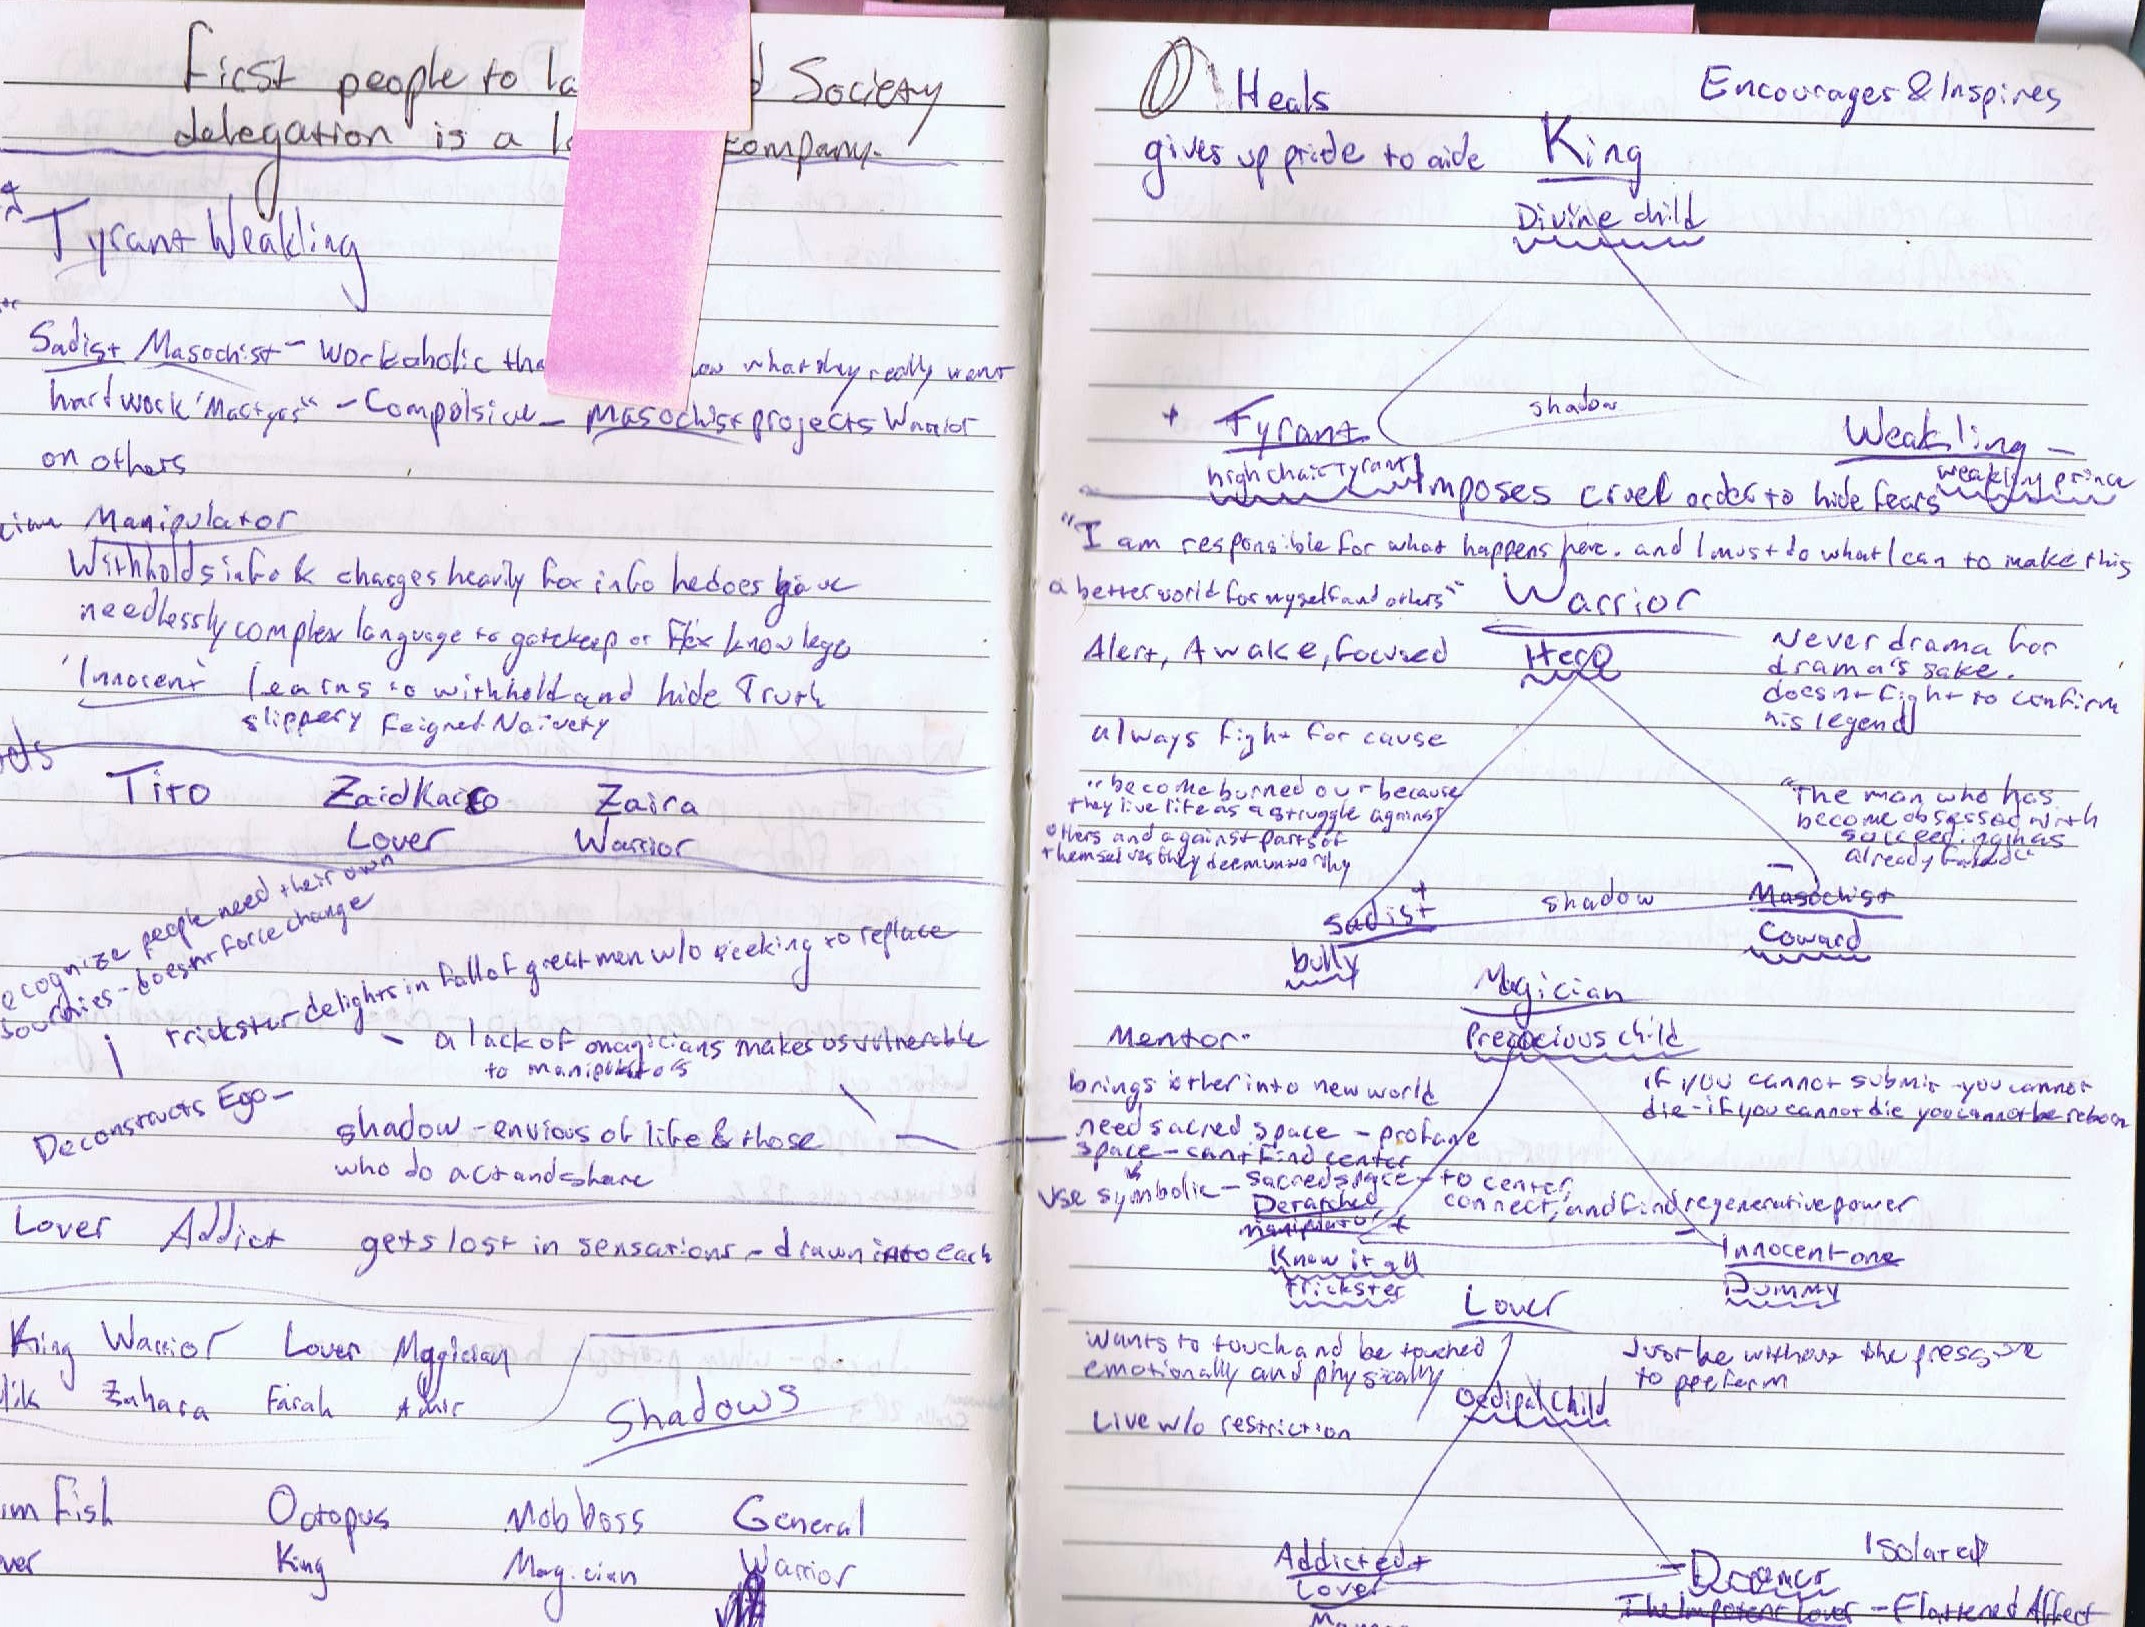 First people to la Society
delegation is a company.
Tyrant Weakling
Sadist Masochist - Workaholic tha what they really want
hard work "Martyrs" - Compolsive - Masochist projects Warrior
on others
Manipulator
Withholds info & charges heavily for info he does give
needlessly complex language to gatekeep or flex knowlege
'Innocent' learns to withhold and hide Truth
slippery feigned Naivety
Tito Zaid Zaira
Lover Warrior
ecognize people need their own
journies - doesn't force change
trickster delights in fall of great men w/o seeking to replace
- a lack of magicians makes us vulnerable
to manipulators
Deconstructs Ego -
shadow - envious of life & those
who do act and share
Lover Addict gets lost in sensations - drawn into each
King Warrior Lover Magician
lik Zahara Farah Amir
Shadows
im Fish Octopus Mob boss General
ver King Magician Warrior
Heals Encourages & Inspires
gives up pride to aide King
Divine child
shadow
+ Tyrant Weakling -
high chair tyrant weakling prince
Imposes cruel order to hide fears
"I am responsible for what happens here. and I must do what I can to make this
a better world for myself and others" Warrior
Alert, Awake, focused Hero Never drama for
drama's sake.
doesn't fight to confirm
his legend
always fight for cause
"become burned out because
they live life as a struggle against
others and against parts of
themselves they deem unworthy
"The man who has
become obsessed with
succeeding has
already failed"
Sadist + shadow - Masochist
bully Coward
Magician
Mentor. Precocious child
brings other into new world if you cannot submit - you cannot
die - if you cannot die you cannot be reborn
need sacred space - profane
space - cant find center
use symbolic - sacred space - to center,
connect, and find regenerative power
Detached
manipulator + - Innocent one
Know it all Dummy
trickster
Lover
wants to touch and be touched Just be without the pressure
emotionally and physically to perform
Oedipal child
Live w/o restriction
Isolated
Addicted + - Dreamer
Lover The Impotent Lover - Flattened Affect